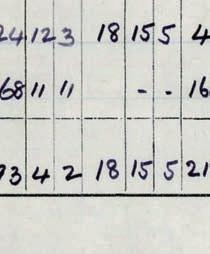 24 12 3 18 15 5 4
68 11 11 - - 16
93 4 2 18 15 5 21